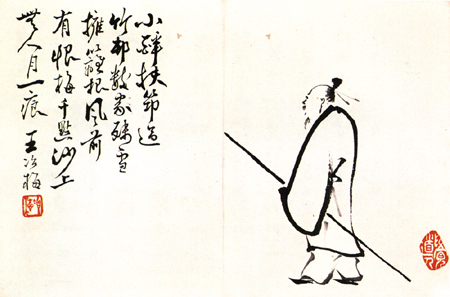 小醉扶筇過
竹邨數家殘雪
擁籬根風前
有恨梅千點沙上
無人月一痕 王冶梅